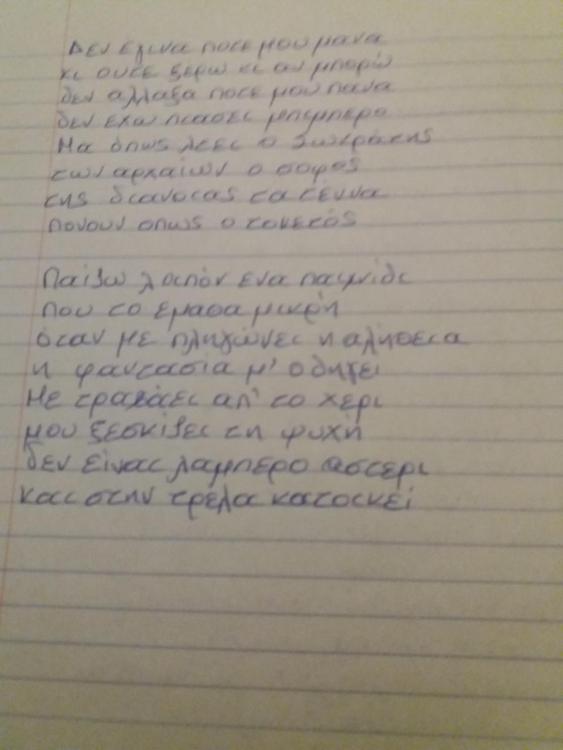 Δεν εγινα ποτε μου μανα
κι ουτε ξερω κι αν μπορώ
δεν αλλαξα ποτε μου πανα
δεν εχω πιασει μπιμπερο
Μα όπως λεει ο Σωκράτης
των αρχαίων ο σοφος
της διανοιας τα γεννα
πονουν οπως ο τοκετός
Παίζω λοιπόν ενα παιχνίδι
που το εμαθα μικρή
όταν με πληγώνει η αλήθεια
η φαντασία μ' οδηγεί
Με τραβάει απ' το χερι
μου ξεσκιζει τη ψυχή
δεν είναι λαμπερο αστερι
και στην τρελα κατοικεί